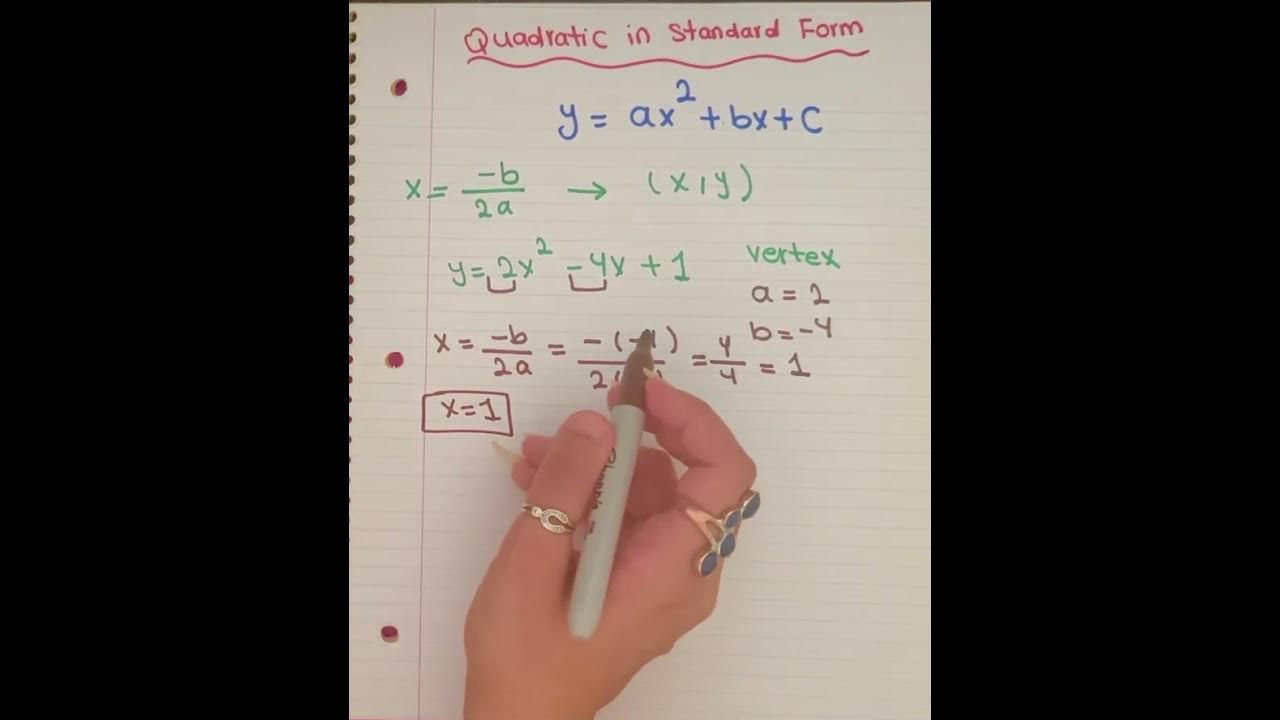 Quadratic in Standard Form
y = ax² + bx + c
x = -b/2a → (x, y)
y = 2x² - 4x + 1
vertex
a = 2
b = -4
x = -b/2a = -(-4)/2( ) = 4/4 = 1
x = 1
Sharpie